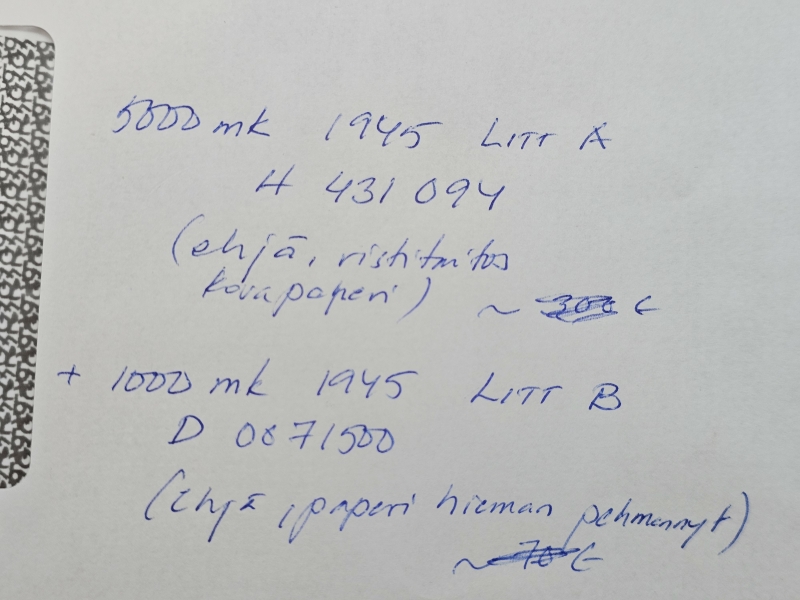 5000 mk 1945 LITT A
H 431 094
(ehjä, ristitaitos
kovapaperi)
~ 300 €
+ 1000 mk 1945 LITT B
D 0871500
(Ehjä, paperi hieman pehmennyt)
~ 70 €